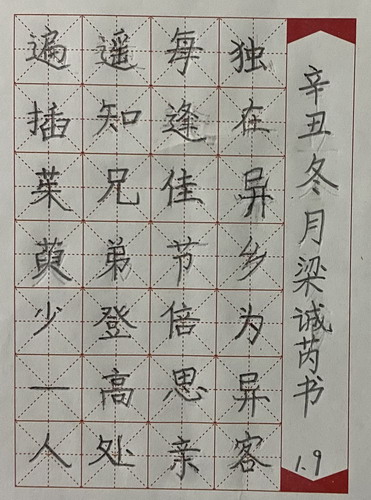 独在异乡为异客
每逢佳节倍思亲
遥知兄弟登高处
遍插茱萸少一人
辛丑冬月梁诚芮书
1.9